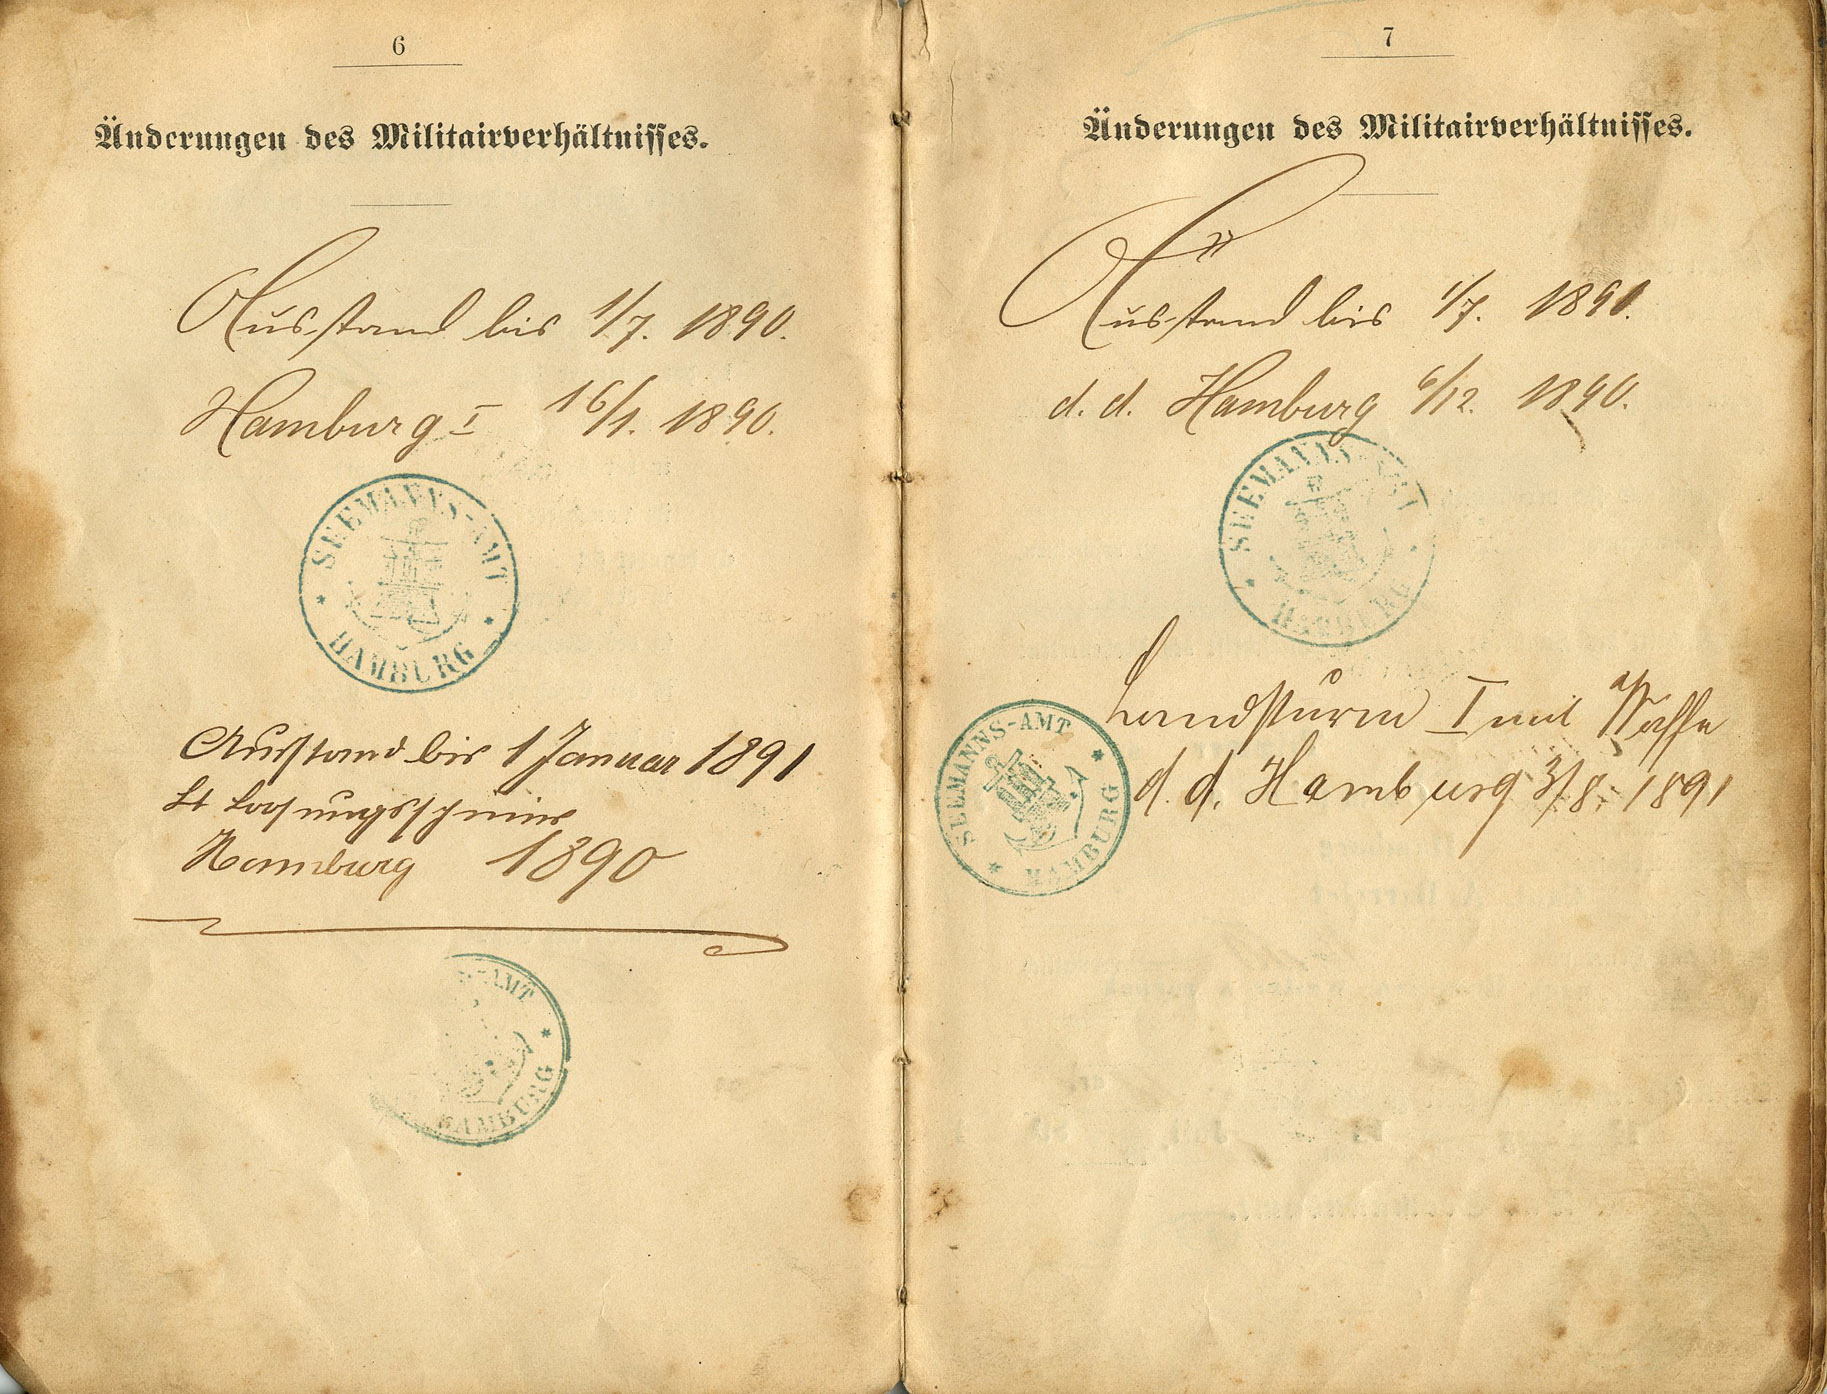 6
Änderungen des Militairverhältnisses.
Ausstand bis 1/7. 1890.
Hamburg I 16/1. 1890.
SEEMANNS-AMT
HAMBURG
Ausstand bis 1 Januar 1891
Lt Losungsschein
Hamburg 1890
AMT
HAMBURG
7
Änderungen des Militairverhältnisses.
Ausstand bis 1/7. 1891.
d. d. Hamburg 6/12. 1890.
SEEMANNS-AMT
HAMBURG
Landsturm I mit Waffe
d. d. Hamburg 3/8. 1891
SEEMANNS-AMT
HAMBURG